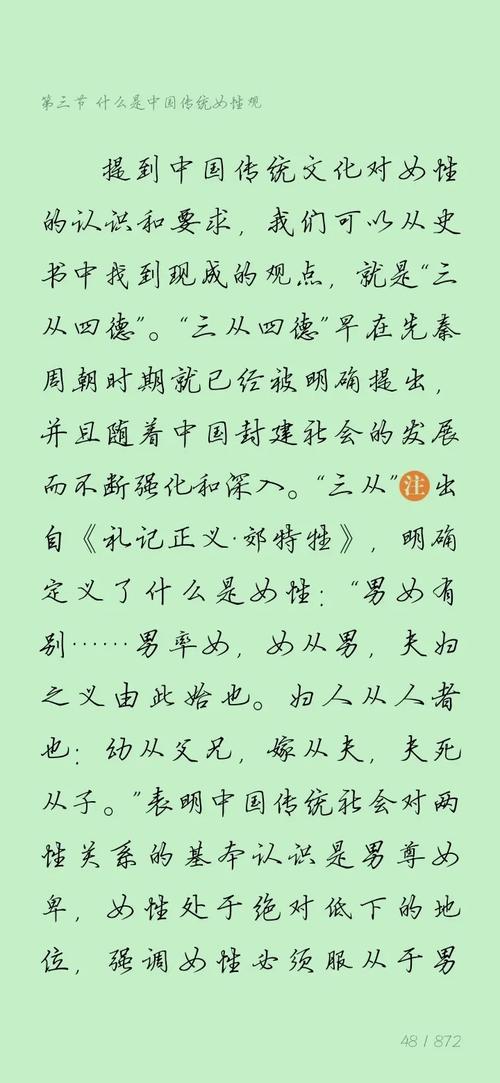 第三节 什么是中国传统女性观
提到中国传统文化对女性
的认识和要求，我们可以从史
书中找到现成的观点，就是“三
从四德”。“三从四德”早在先秦
周朝时期就已经被明确提出，
并且随着中国封建社会的发展
而不断强化和深入。“三从”注出
自《礼记正义·郊特牲》，明确
定义了什么是女性：“男女有
别……男率女，女从男，夫妇
之义由此始也。妇人从人者
也：幼从父兄，嫁从夫，夫死
从子。”表明中国传统社会对两
性关系的基本认识是男尊女
卑，女性处于绝对低下的地
位，强调女性必须服从于男
48 / 872